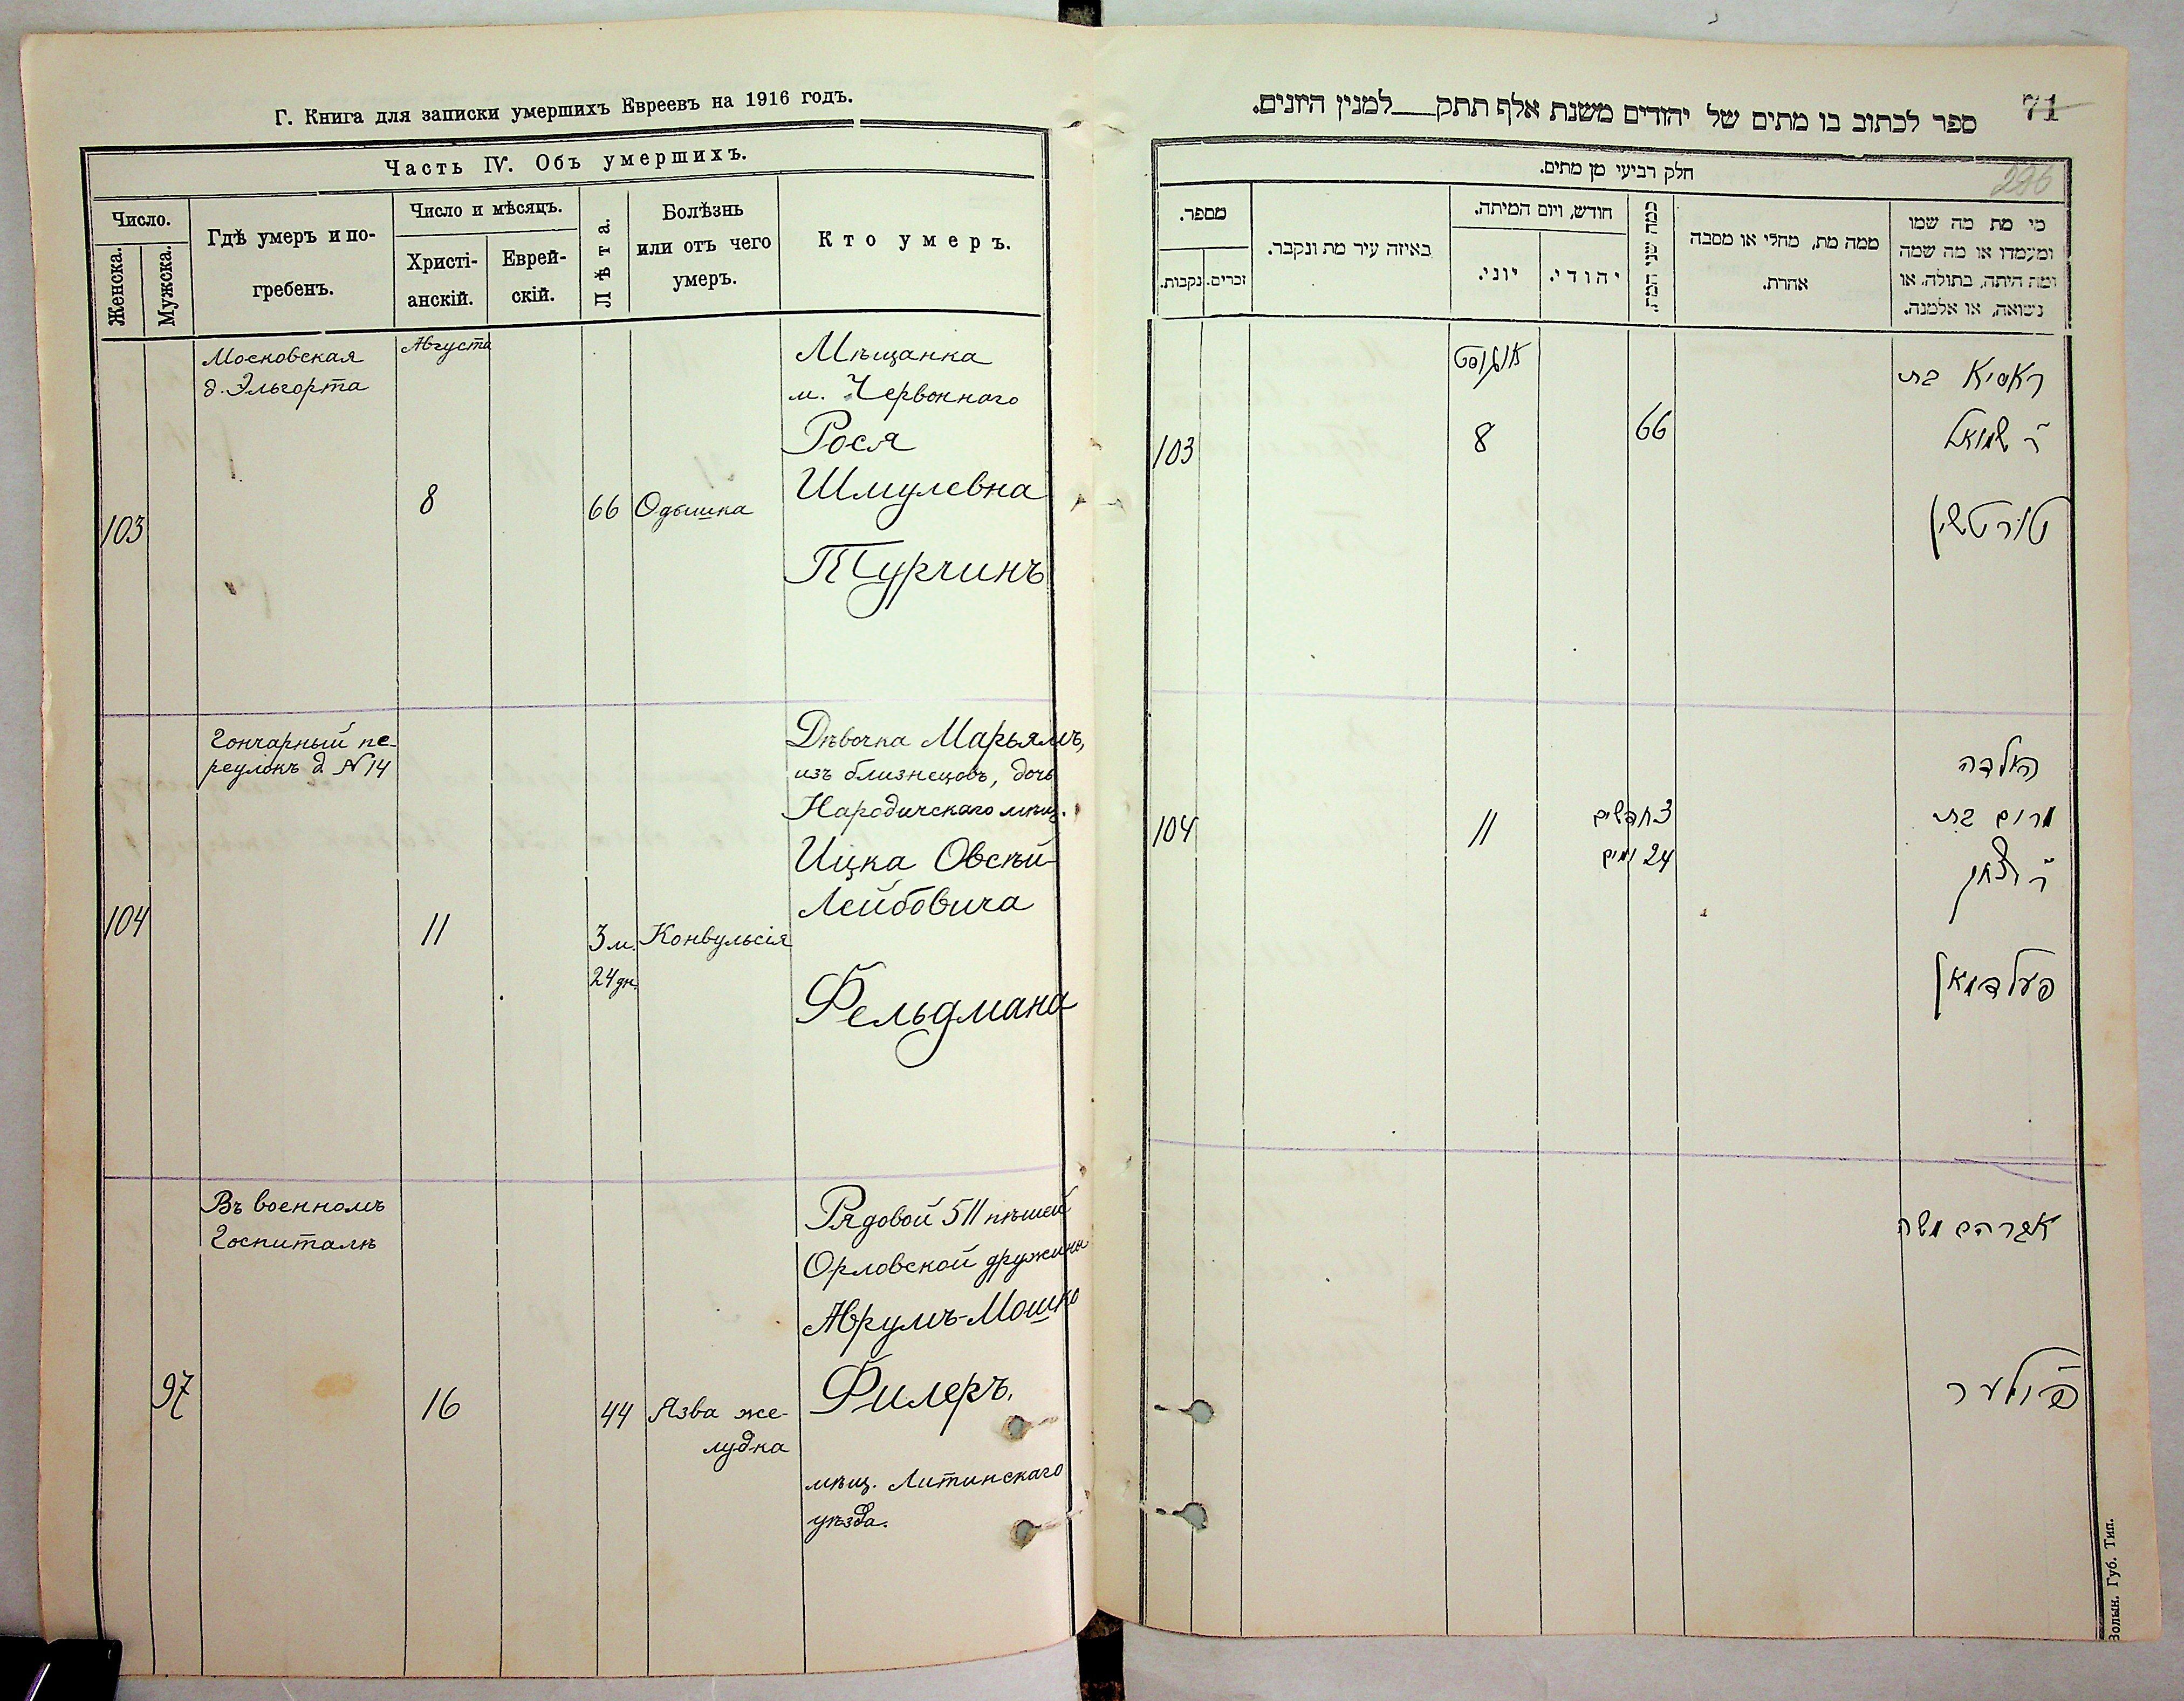 Г. Книга для записки умершихъ Евреевъ на 1916 годъ.
Часть IV. Объ умершихъ.
Число.
Женска.
Мужска.
Гдѣ умеръ и по-
гребенъ.
Число и мѣсяцъ.
Христі-
анскій.
Еврей-
скій.
Лѣта.
Болѣзнь
или отъ чего
умеръ.
Кто умеръ.
103
Московская
д. Эльгорта
Августа
8
66
Одышка
Мѣщанка
м. Червоннаго
Рося
Шмулевна
Турчинъ
104
Гончарный пе-
реулокъ д. N 14
11
3 м.
24 дн.
Конвульсія
Дѣвочка Марьямъ,
изъ близнецовъ, дочь
Народичскаго мѣщ.
Ицка Овсѣй-
Лейбовича
Фельдмана
97
Въ военномъ
Госпиталѣ
16
44
Язва же-
лудка
Рядовой 511 пѣшей
Орловской дружины
Аврумъ-Мошко
Филеръ.
мѣщ. Литинскаго
уѣзда.
71
ספר לכתוב בו מתים של יהודים משנת אלף תתק למנין היונים.
296
חלק רביעי מן מתים.
מספר.
נקבות.
זכרים.
באיזה עיר מת ונקבר.
חודש, ויום המיתה.
יוני.
יהודי.
כמה שני המת.
ממה מת, מחלי או מסבה
אחרת.
מי מת מה שמו
ומעמדו או מה שמה
ומה היתה, בתולה, או
נשואה, או אלמנה.
103
אוגוסט
8
66
ראסיא בת
ר' שמואל
טורטשין
104
11
3 חדשים
24 ימים
הילדה
מרים בת
ר' יצחק
פעלדמאן
אברהם משה
פילער
Волын. Губ. Тип.